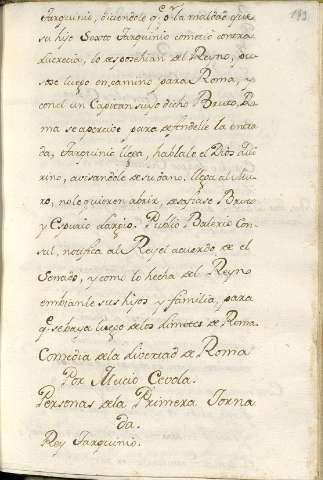 193
Tarquinio, diciendole q.e p.r la maldad que
su hijo Sexto Tarquinio cometió contra
Lucrecia, lo desposehian del Reyno, pu
sose luego en camino para Roma, y
con el un Capitan suyo dicho Bruto, Ro
ma se apercibe para defendelle la entra
da, Tarquinio llega, hablale el Dios
avisandole de su daño. llega al Mu
ro, no le quieren abrir, desafiase Bruto
y Espurio Largio. Publio Balerio Con
sul, notifica al Rey el acuerdo de el
Senado, y como lo hecha del Reyno
embianle sus hijos y familia, para
q.e se baya luego de los limetes de Roma.
Comedia de la libertad de Roma
Por Mucio Cevola.
Personas de la Primera Jorna
da.
Rey Tarquinio.